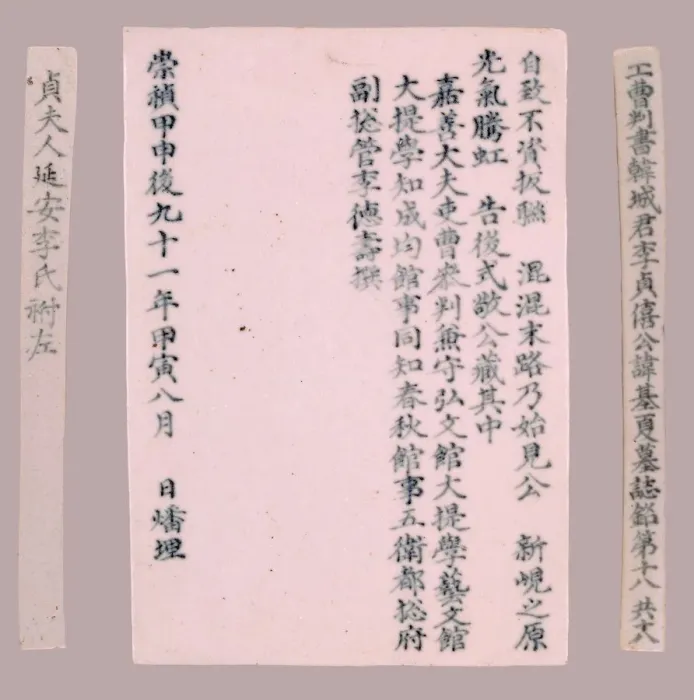 工曹判書韓城君李貞僖公諱基夏墓誌銘第十八 共十八
自致不資扳聯 混混末路乃始見公 新峴之原
光氣騰虹 告後式敬公藏其中
嘉善大夫吏曹叅判兼守弘文館大提學藝文館
大提學知成均館事同知春秋館事五衛都捴府
副捴管李德壽撰
崇禎甲申後九十一年甲寅八月 日燔埋
貞夫人延安李氏祔左